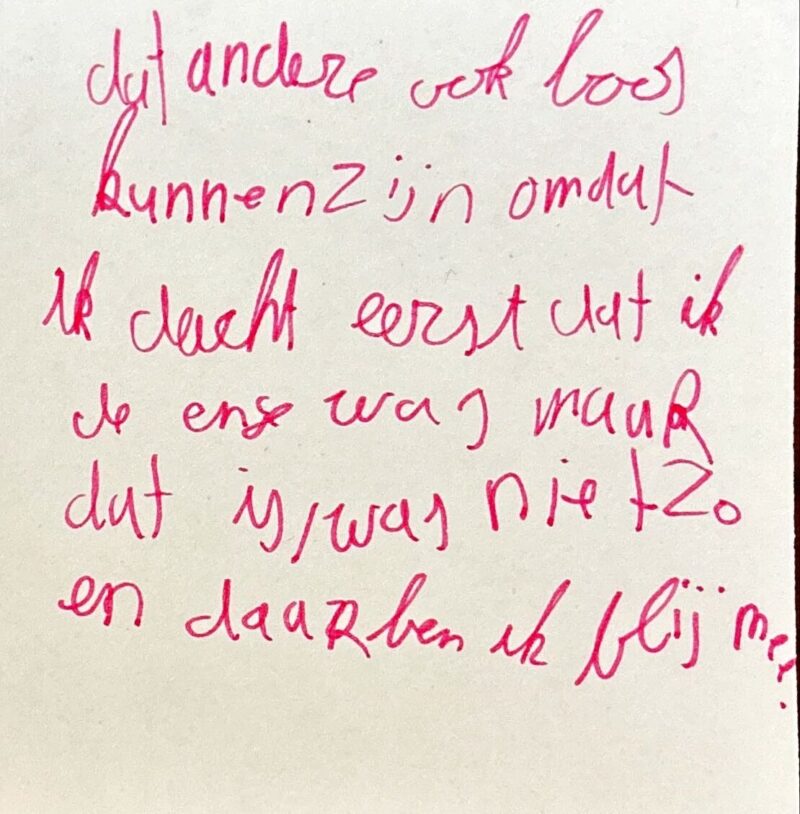 dat andere ook boos
kunnen zijn omdat
ik dacht eerst dat ik
de ense was maar
dat is/was niet zo
en daar ben ik blij mee.